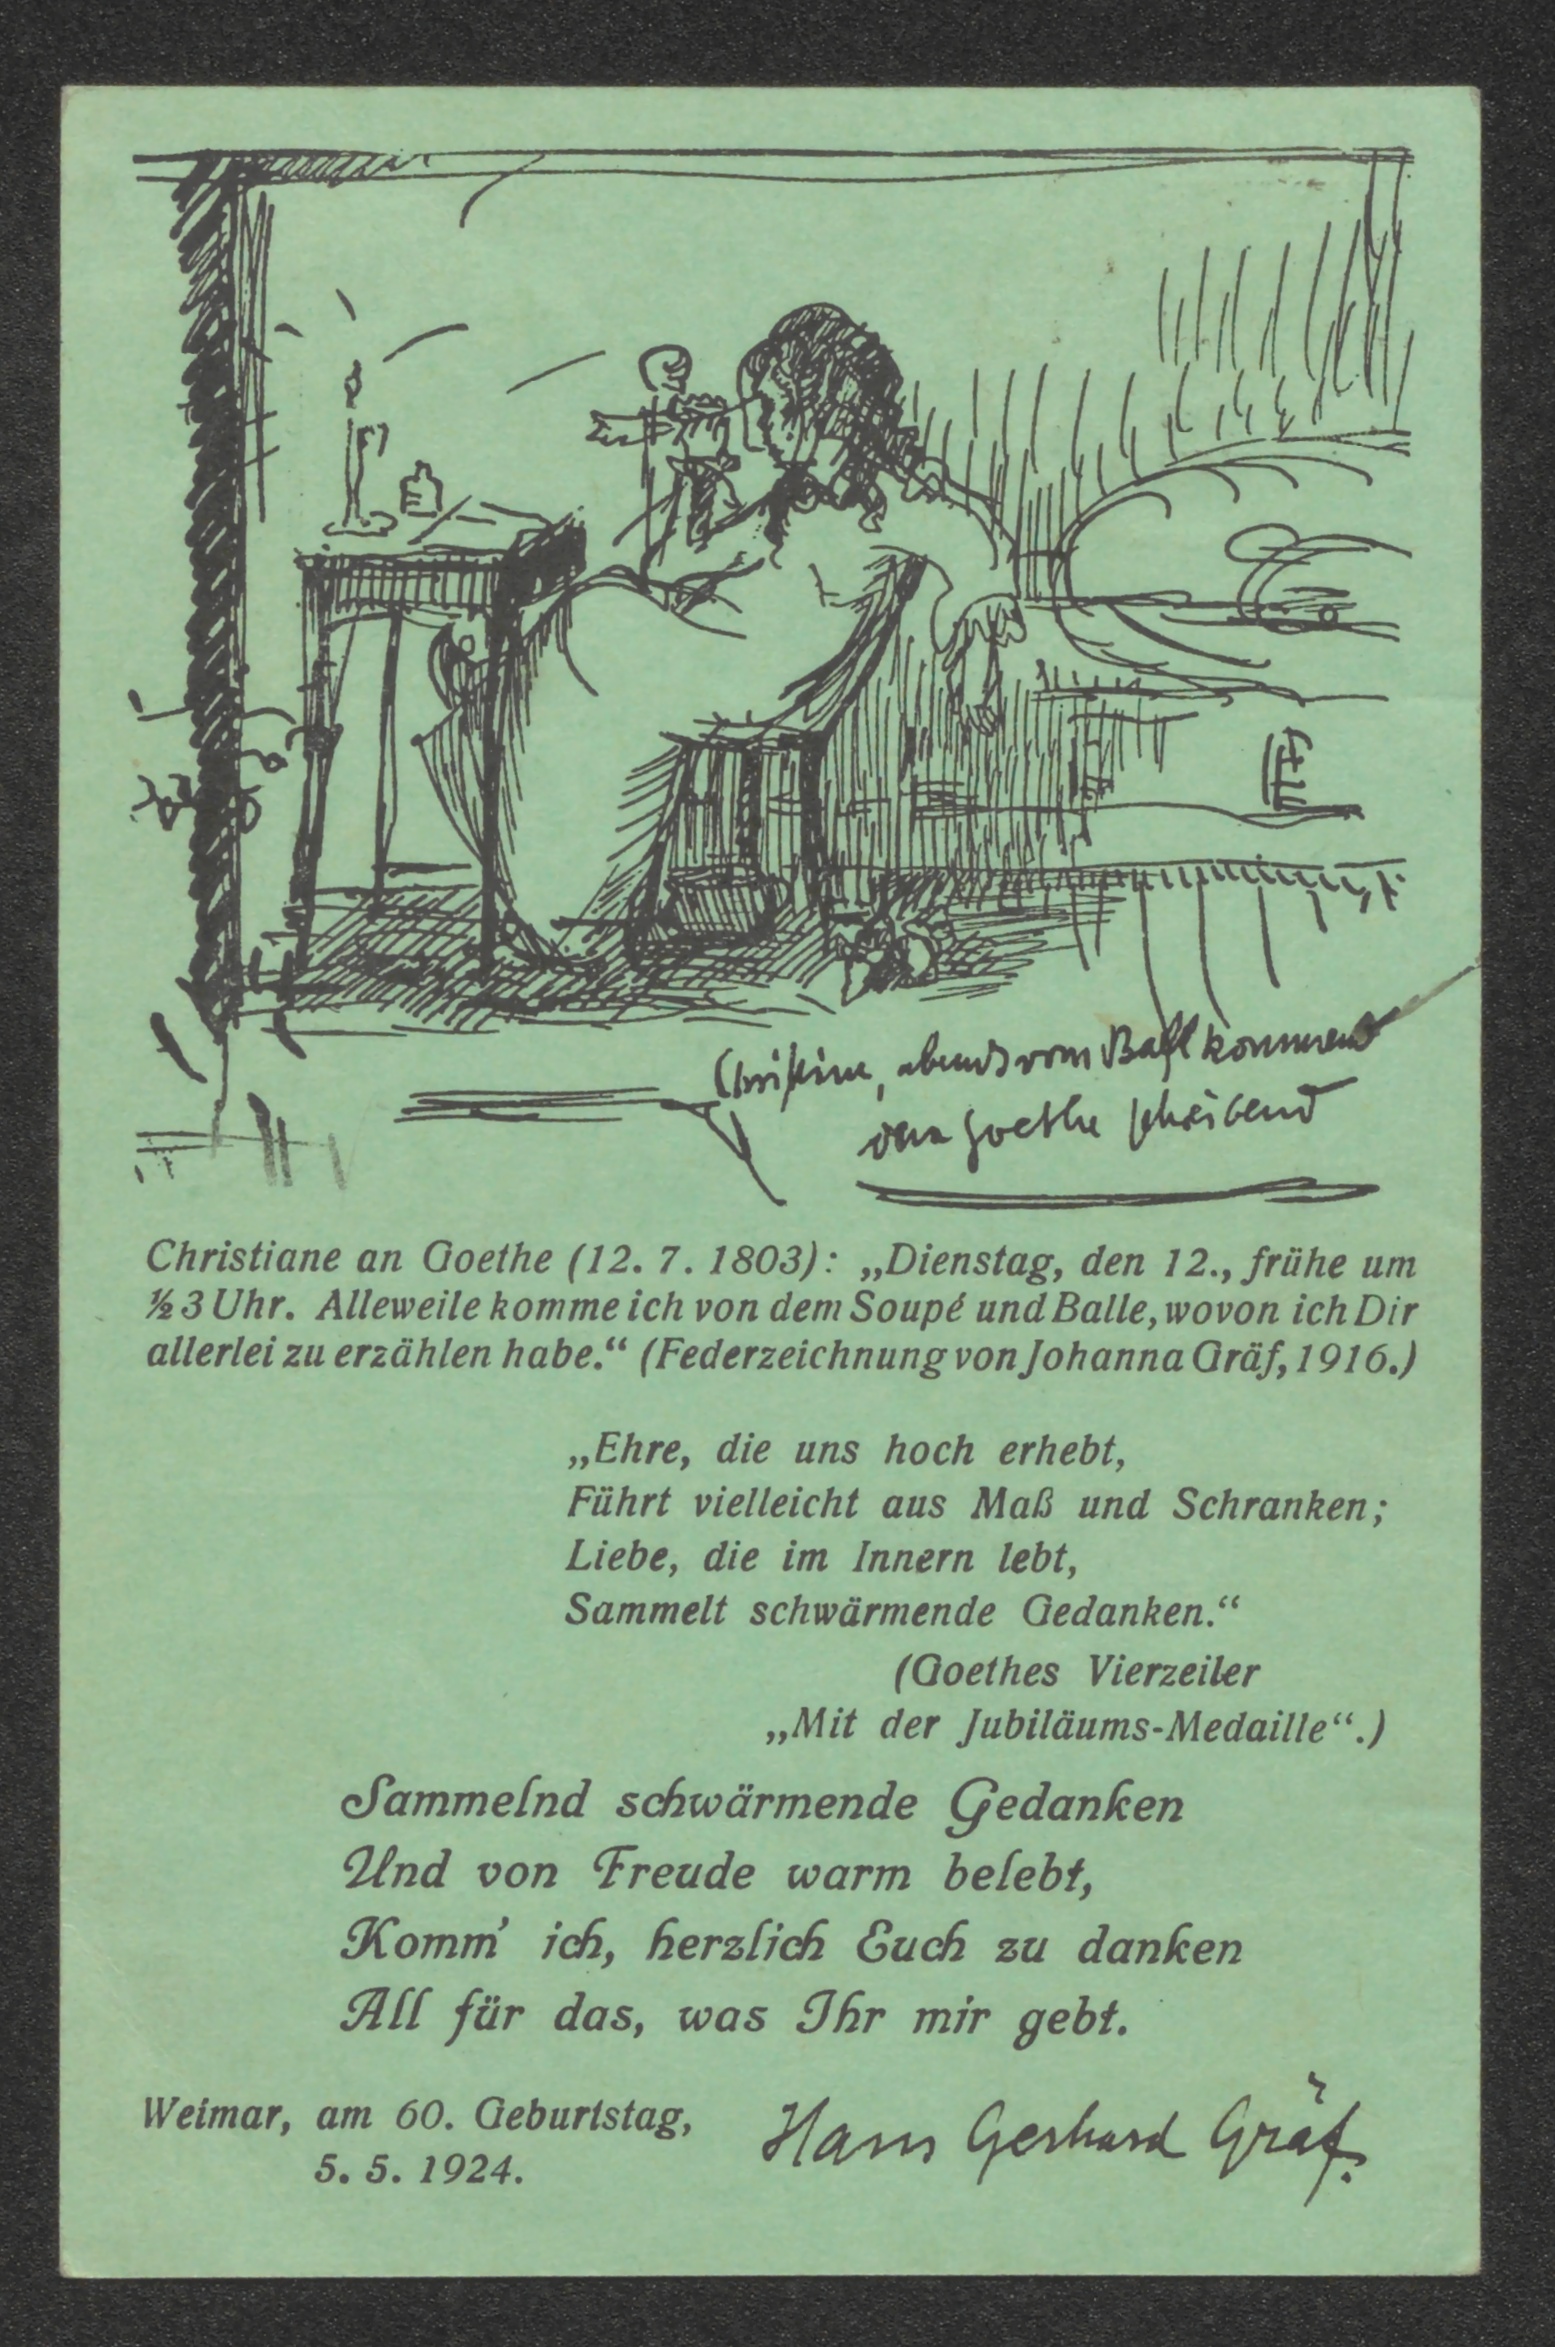 Christine, abends vom Ball kommend
an Goethe schreibend
Christiane an Goethe (12. 7. 1803): „Dienstag, den 12., frühe um
½ 3 Uhr. Alleweile komme ich von dem Soupé und Balle, wovon ich Dir
allerlei zu erzählen habe.“ (Federzeichnung von Johanna Gräf, 1916.)
„Ehre, die uns hoch erhebt,
Führt vielleicht aus Maß und Schranken;
Liebe, die im Innern lebt,
Sammelt schwärmende Gedanken.“
(Goethes Vierzeiler
„Mit der Jubiläums-Medaille“.)
Sammelnd schwärmende Gedanken
Und von Freude warm belebt,
Komm' ich, herzlich Euch zu danken
All für das, was Ihr mir gebt.
Weimar, am 60. Geburtstag,
5. 5. 1924.
Hans Gerhard Gräf.